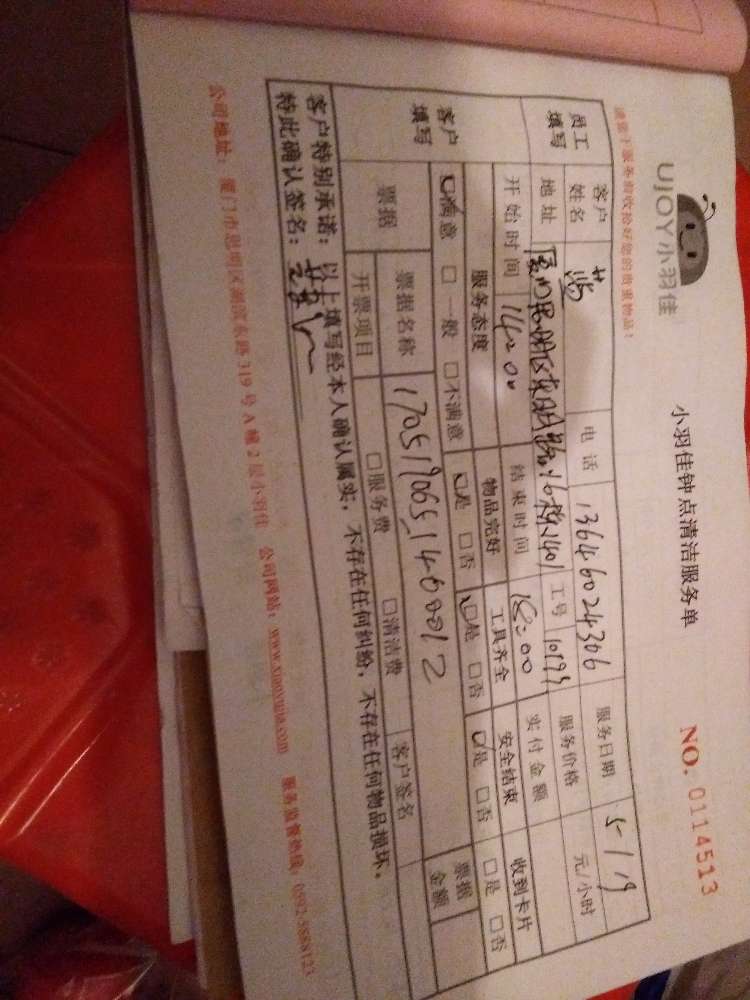 UJOY小羽佳
小羽佳钟点清洁服务单
NO. 0114513
请留下服务前收拾好您的贵重物品!
员工填写
客户姓名
电话 13646024306
服务日期 5-119
地址
工号
服务价格 元/小时
开始时间 14:00
结束时间 18:00
实付金额
客户填写
服务态度 物品完好 工具齐全 安全结束 收到卡片
☑满意 □一般 □不满意 ☑是 □否 ☑是 □否 ☑是 □否 □是 □否
票据
票据名称 170519065140012
票据金额
开票项目 □服务费 □清洁费 客户签名
客户特别承诺:以上填写经本人确认属实,不存在任何纠纷,不存在任何物品损坏。
特此确认签名:
公司地址:厦门市思明区湖滨东路319号A幢2层小羽佳 公司网站:www.xiaoyujia.com 服务监督热线:0592-5888123